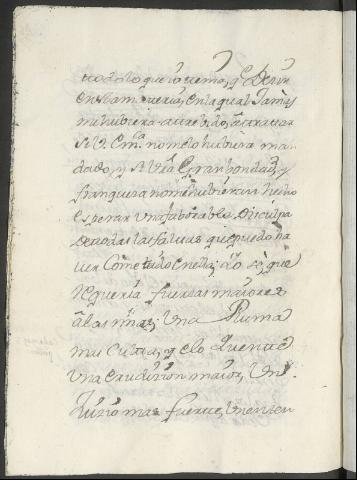 todo lo que yo temo, y Dezir
en esta materia, en la qual Jamàs
me hubiera atrevido, à tratar
si V. Em.ª no me lo hubiera man
dado, y si V.ra Gran bondad, y
franqueza no me hubieran hecho
esperar una faborable Disculpa
de todas las faltas que puedo ha
ver Cometido en ella; yò sè que
requeria fuerzas maiores
à las mias; Una Pluma
mui Culta, y eloquente
una erudizion maior, Un
Juizio mas fuerte, Un